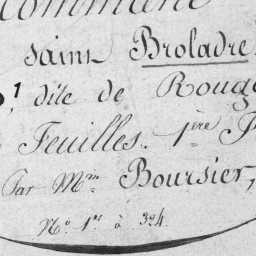 Commune
saint Broladre
1, dite de Roug
Feuilles. 1ère P
Par Mm. Boursier,
No. 1er à 394.